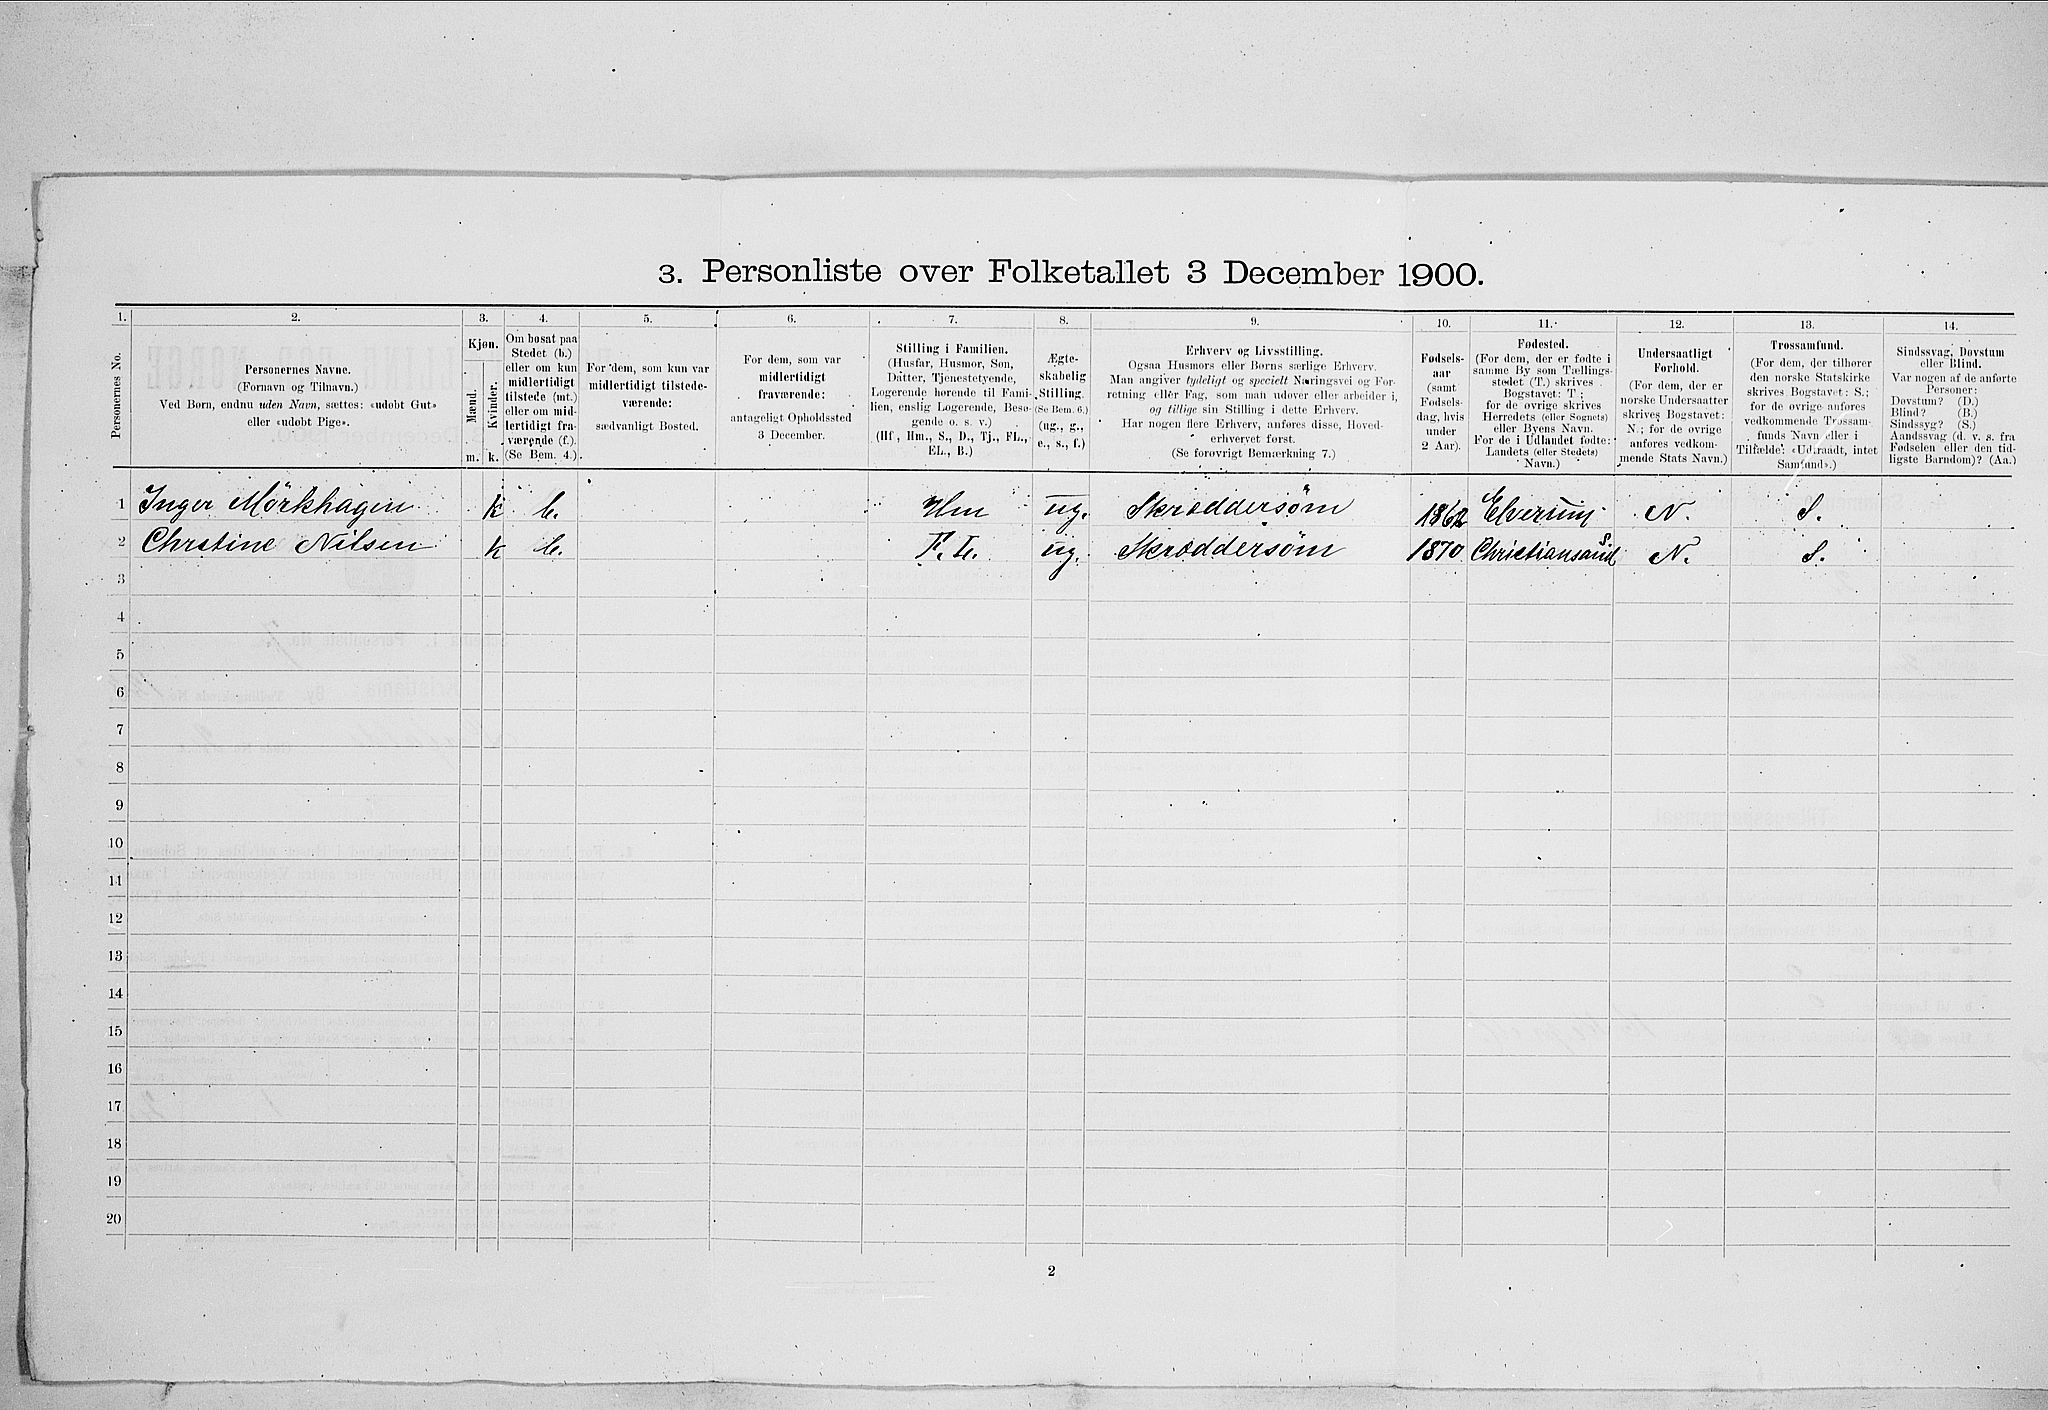 3. Personliste over Folketallet 3 December 1900.
1. 2. 3. 4. 5. 6. 7. 8. 9. 10. 11. 12. 13. 14.
Personernes No.
Personernes Navne.
(Fornavn og Tilnavn.)
Ved Børn, endnu uden Navn, sættes: «udøbt Gut»
eller «udøbt Pige».
Kjøn.
Mænd.
Kvinder.
m. k.
Om bosat paa
Stedet (b.)
eller om kun
midlertidigt
tilstede (mt.)
eller om mid-
lertidigt fra-
værende (f.)
(Se Bem. 4.)
For dem, som kun var
midlertidigt tilstede-
værende:
sædvanligt Bosted.
For dem, som var
midlertidigt
fraværende:
antageligt Opholdssted
3 December.
Stilling i Familien.
(Husfar, Husmor, Søn,
Datter, Tjenestetyende,
Logerende hørende til Fami-
lien, enslig Logerende, Besø-
gende o. s. v.)
(Hf., Hm., S., D., Tj., FL.,
EL., B.)
Ægte-
skabelig
Stilling.
(Se Bem. 6.)
(ug., g.,
e., s., f.)
Erhverv og Livsstilling.
Ogsaa Husmors eller Børns særlige Erhverv.
Man angiver tydeligt og specielt Næringsvei og For-
retning eller Fag, som man udøver eller arbeider i,
og tillige sin Stilling i dette Erhverv.
Har nogen flere Erhverv, anføres disse, Hoved-
erhvervet først.
(Se forøvrigt Bemærkning 7.)
Fødsels-
aar
(samt
Fødsels-
dag, hvis
under
2 Aar).
Fødested.
(For dem, der er fødte i
samme By som Tællings-
stedet (T.) skrives
Bogstavet: T ;
for de øvrige skrives
Herredets (eller Sognets)
eller Byens Navn.
For de i Udlandet fødte:
Landets (eller Stedets)
Navn.)
Undersaatligt
Forhold.
(For dem, der er
norske Undersaatter
skrives Bogstavet:
N.; for de øvrige
anføres vedkom-
mende Stats Navn.)
Trossamfund.
(For dem, der tilhører
den norske Statskirke
skrives Bogstavet: S.;
for de øvrige anføres
vedkommende Trossam-
funds Navn eller i
Tilfælde: «Udtraadt, intet
Samfund».)
Sindssvag, Døvstum
eller Blind.
Var nogen af de anførte
Personer:
Døvstum? (D.)
Blind? (B.)
Sindssyg? (S.)
Aandssvag (d. v. s. fra
Fødselen eller den tid-
ligste Barndom)? (Aa.)
1 Inger Mørkhagen k b. Hm ug. Skræddersøm 1862 Elverum N. S.
2 Christine Nilsen k b. F. L. ug. Skræddersøm 1870 Christiansand S. N. S.
3
4
5
6
7
8
9
10
11
12
13
14
15
16
17
18
19
20
2